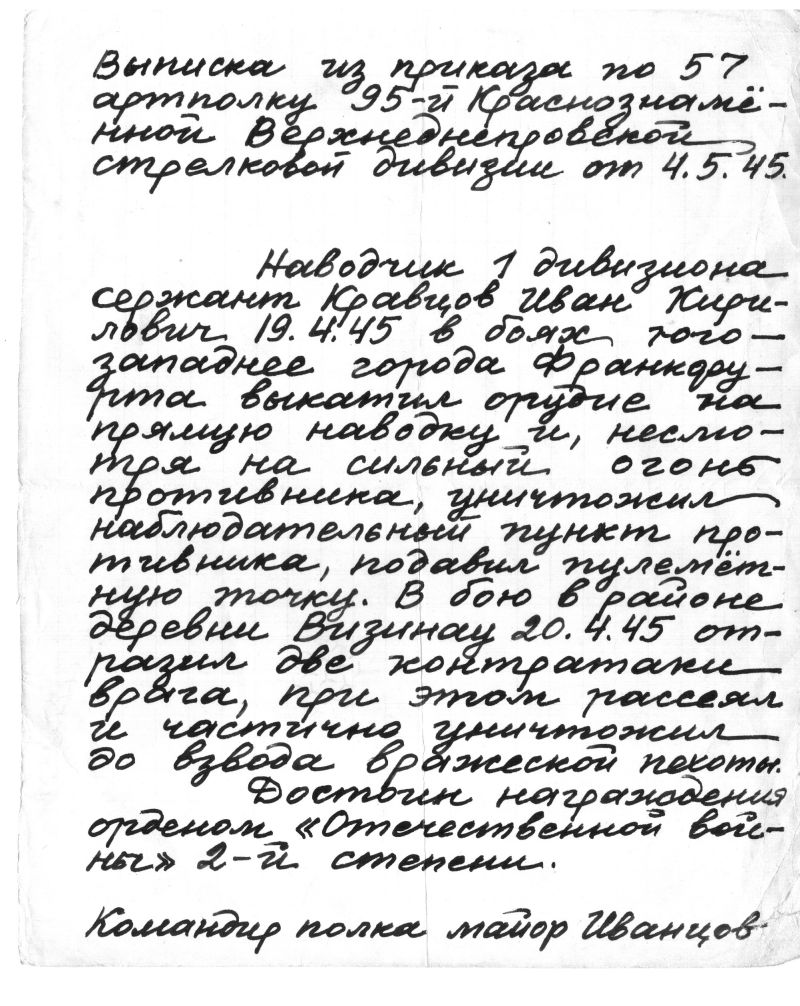 Выписка из приказа по 57
артполку 95-й Краснознамё-
нной Верхнеднепровской
стрелковой дивизии от 4.5.45.
Наводчик 1 дивизиона
сержант Кравцов Иван Кири-
лович 19.4.45 в боях юго-
западнее города Франкфу-
рта выкатил орудие на
прямую наводку и, несмо-
тря на сильный огонь
противника, уничтожил
наблюдательный пункт про-
тивника, подавил пулемёт-
ную точку. В бою в районе
деревни Визинау 20.4.45 от-
разил две контратаки
врага, при этом рассеял
и частично уничтожил
до взвода вражеской пехоты.
Достоин награждения
орденом «Отечественной вой-
ны» 2-й степени.
Командир полка майор Иванцов